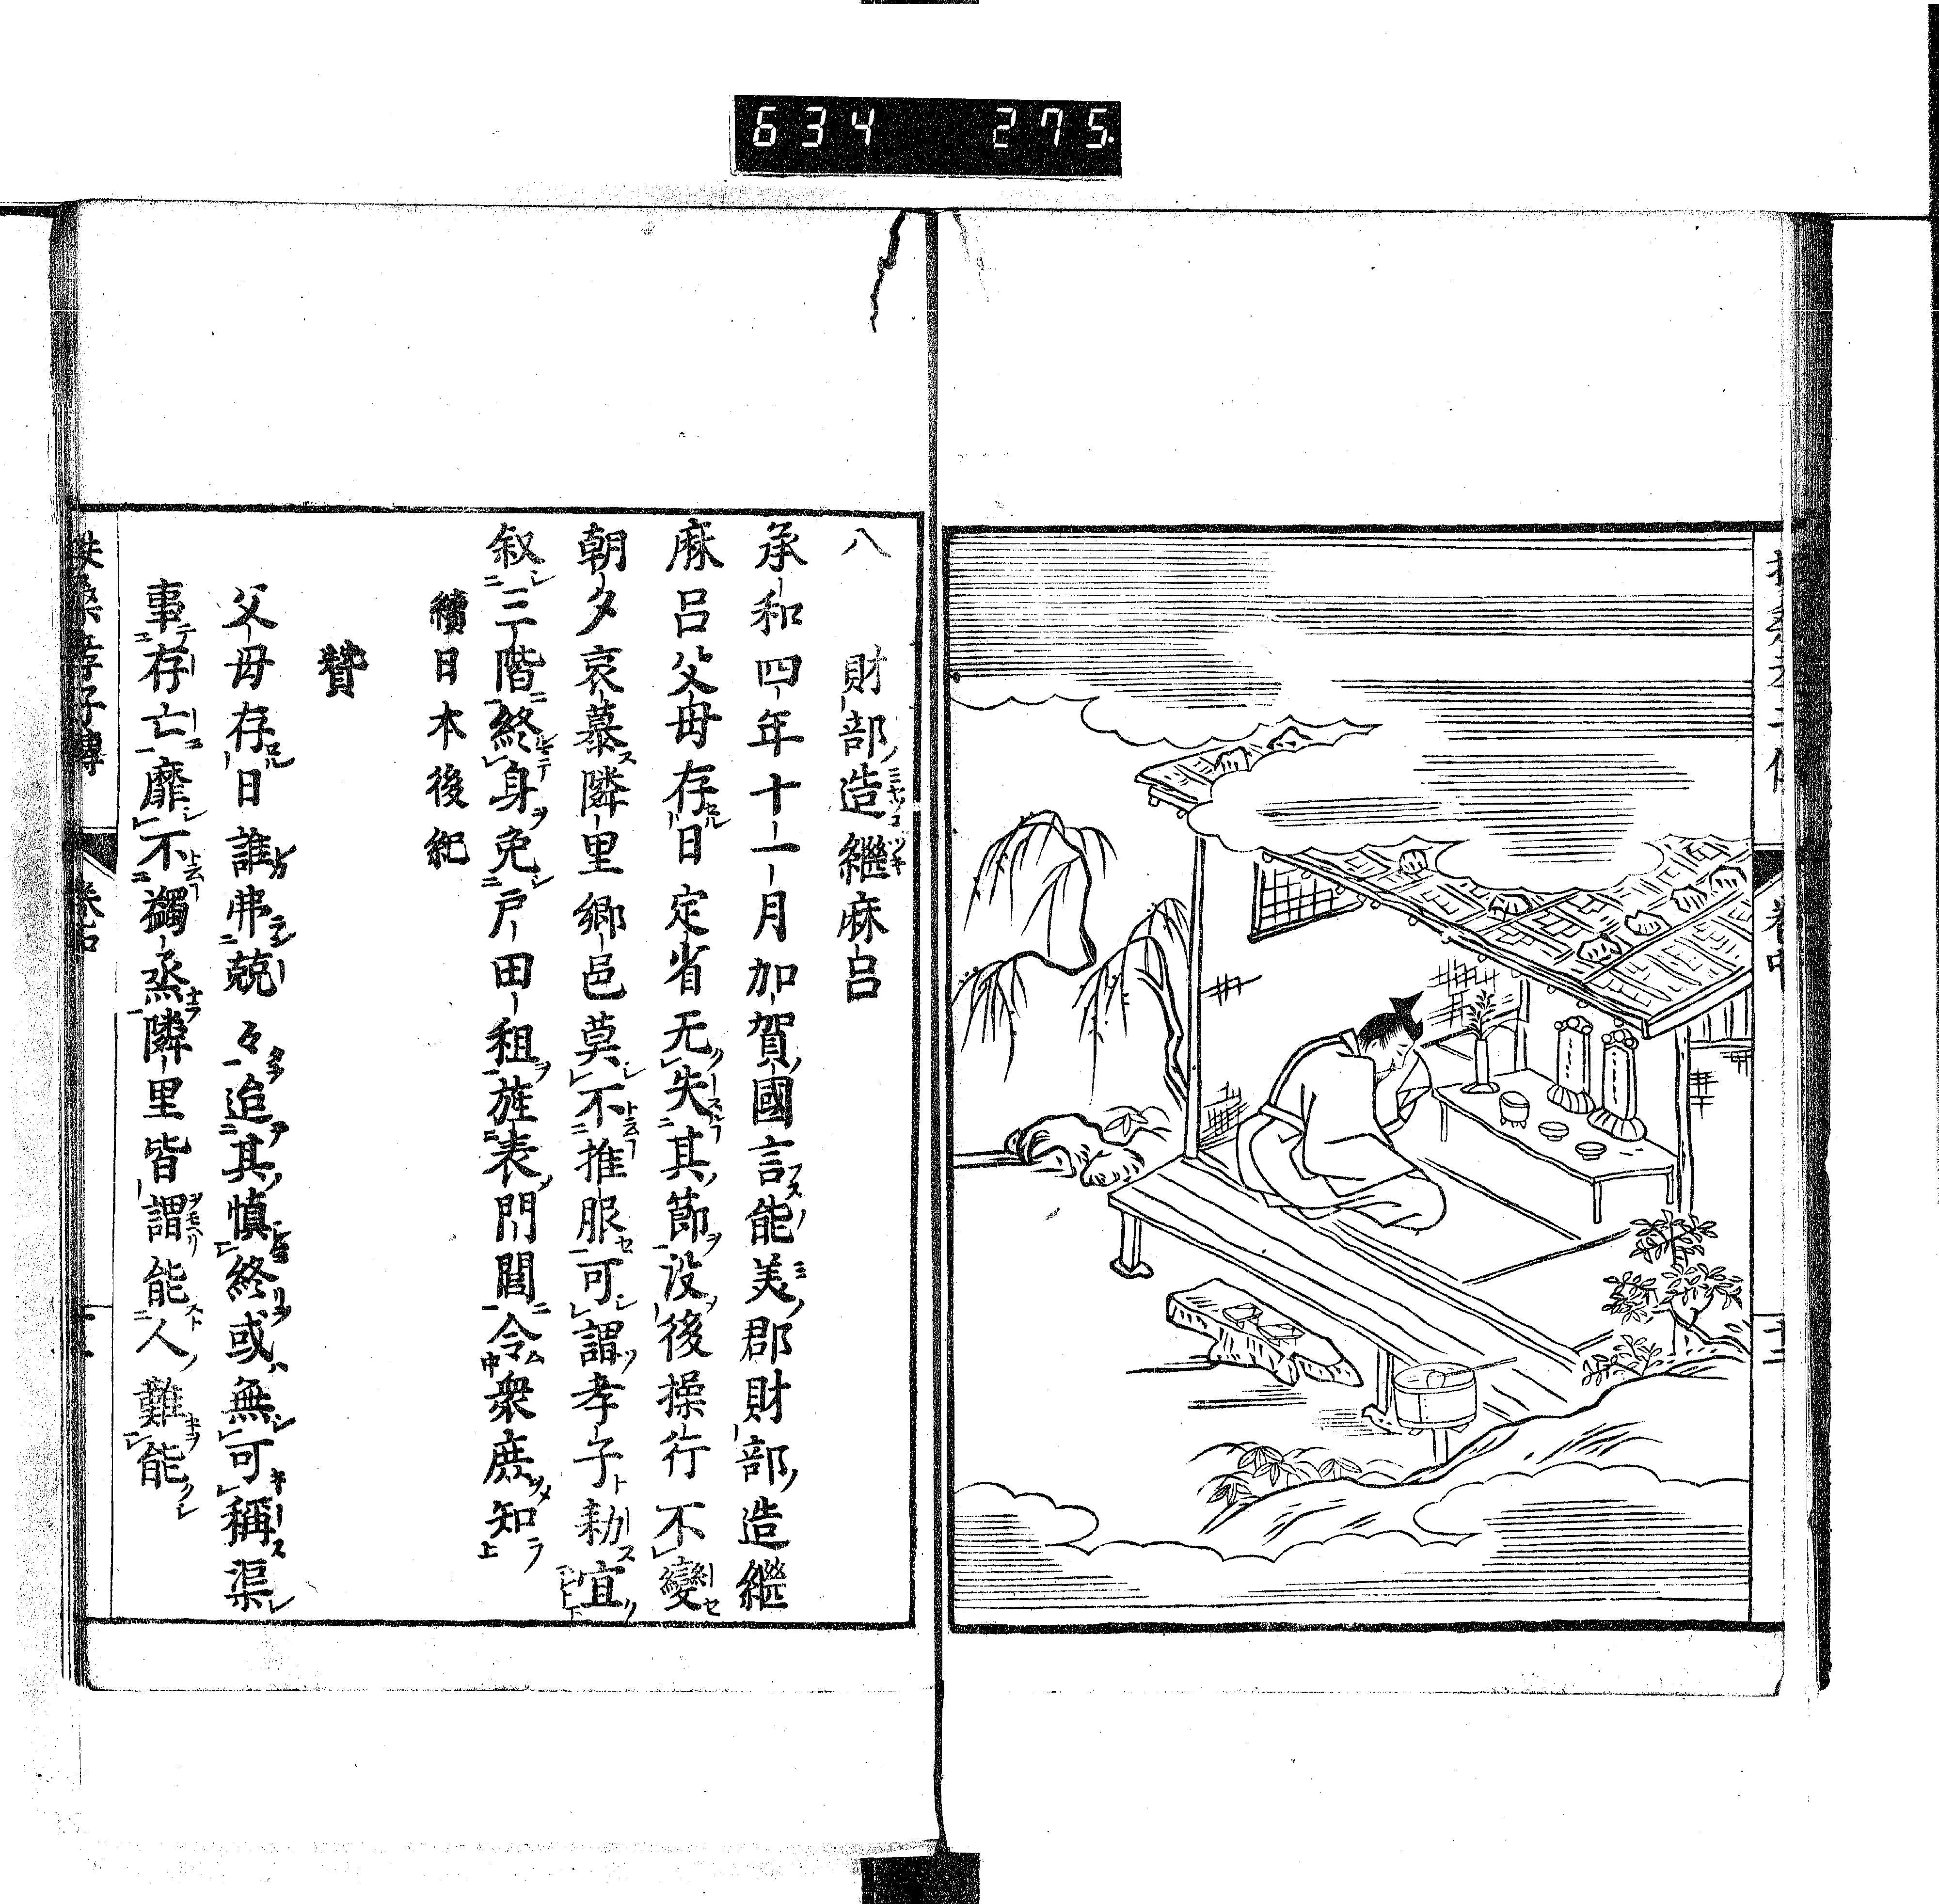 634 275
八 財部造繼麻呂
承和四年十一月加賀國言能美郡財部造繼
麻呂父母存日定省无失其節沒後操行不變
朝夕哀慕隣里鄉邑莫不推服可謂孝子勅宜
叙三階終身免戸田租旌表門閭令衆庶知
續日本後紀
贊
父母存日誰弗兢々追其慎終或無可稱渠
事存亡靡不蠲烝隣里皆謂能人難能
扶桑孝子傳